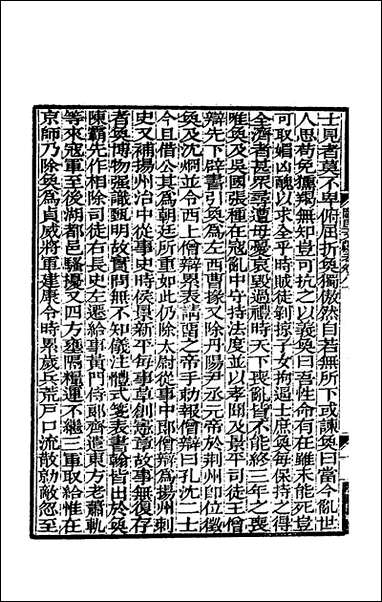 士見者莫不卑俯屈折奐獨傲然自若無所下或諫奐曰當今亂世
人思苟免獯羯無知豈可抗之以義奐曰吾性命有在雖未能死豈
可取媚凶醜以求全乎時賊徒剝掠子女拘逼士庶奐每保持之得
全濟者甚衆尋遭母憂哀毀過禮時天下喪亂皆不能終三年之喪
唯奐及吳國張種在寇亂中守持法度並以孝聞及景平司徒王僧
辯先下辟書引奐為左西曹掾又除丹陽尹丞元帝於荊州即位徵
奐及沈炯並令西上僧辯累表請留之帝手勅報僧辯曰孔沈二士
今且借公其為朝廷所重如此仍除太尉從事中郎僧辯為揚州刺
史又補揚州治中從事史時侯景新平每事草創憲章故事無復存
者奐博物强識甄明故實問無不知儀注體式箋表書翰皆出於奐
陳霸先作相除司徒右長史左遷給事黃門侍郎齊遣東方老蕭軌
等來寇軍至後湖都邑騷擾又四方壅隔糧運不繼三軍取給惟在
京師乃除奐為貞威將軍建康令時累歲兵荒戶口流散勍敵忽至